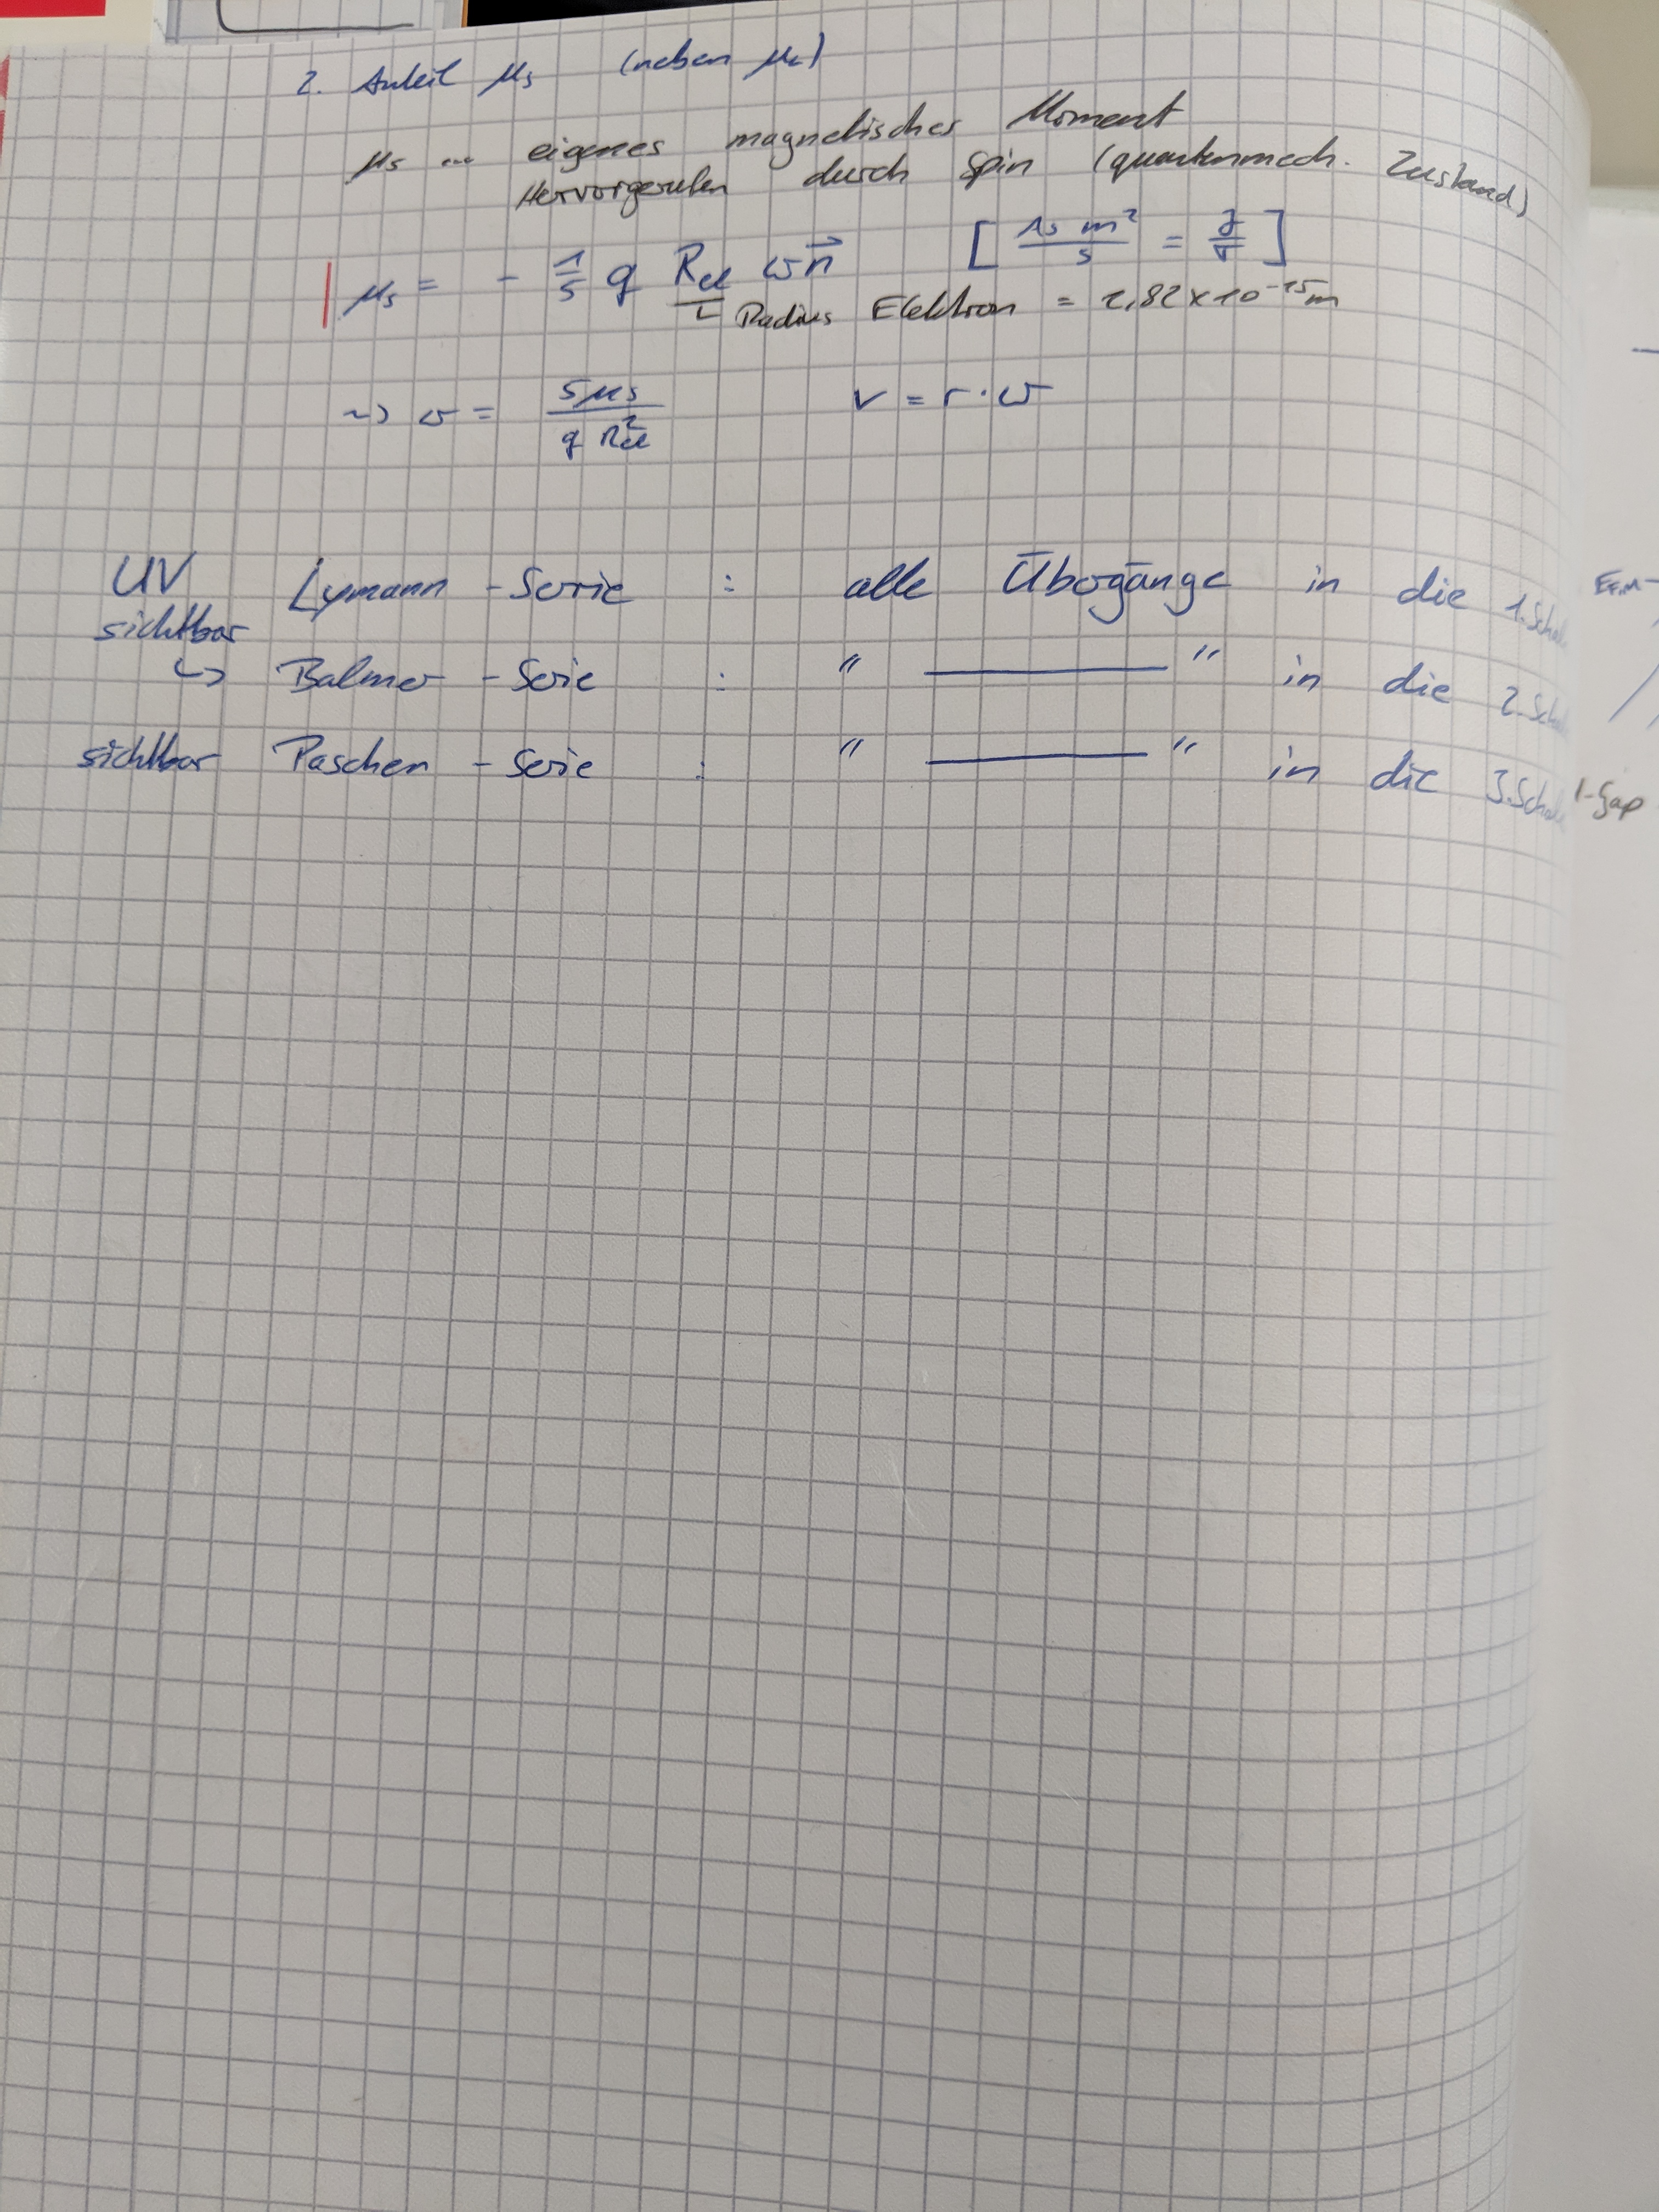 2. Anteil μs (neben μL)
μs ... eigenes magnetisches Moment
Hervorgerufen durch Spin (quantenmech. Zustand)
μs = - 1/5 q Rel ω n⃗ [As m²/s = J/T]
Radius Elektron = 2,82 x 10⁻¹⁵ m
~> ω = 5μs / q Rel² v = r · ω
UV Lymann - Serie : alle Übergänge in die 1. Schal
sichtbar
↳ Balmer - Serie : " ——— " in die 2. Schal
sichtbar Paschen - Serie : " ——— " in die 3. Schal
-Gap